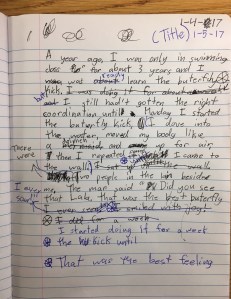 1-4-17
(Title) 1-5-17
A year ago, I was only in swimming
class for about 3 years and I
was about learn the buterfly
ready
kick. I was doing it for about
but I still had't gotten the right
coordination until Monday I started
the buterfly kick. I dove into
the water, moved my body like
a and came up for air,
then I repeated I came to
There were
the wall. I got up the walls
two people in the lane beside
me, The man said Did you see
I
saw
that Lala, that was the best butterfly
I ever smiled with joy!
I did for a week
I started doing it for a week
the kick until
That was the best feeling